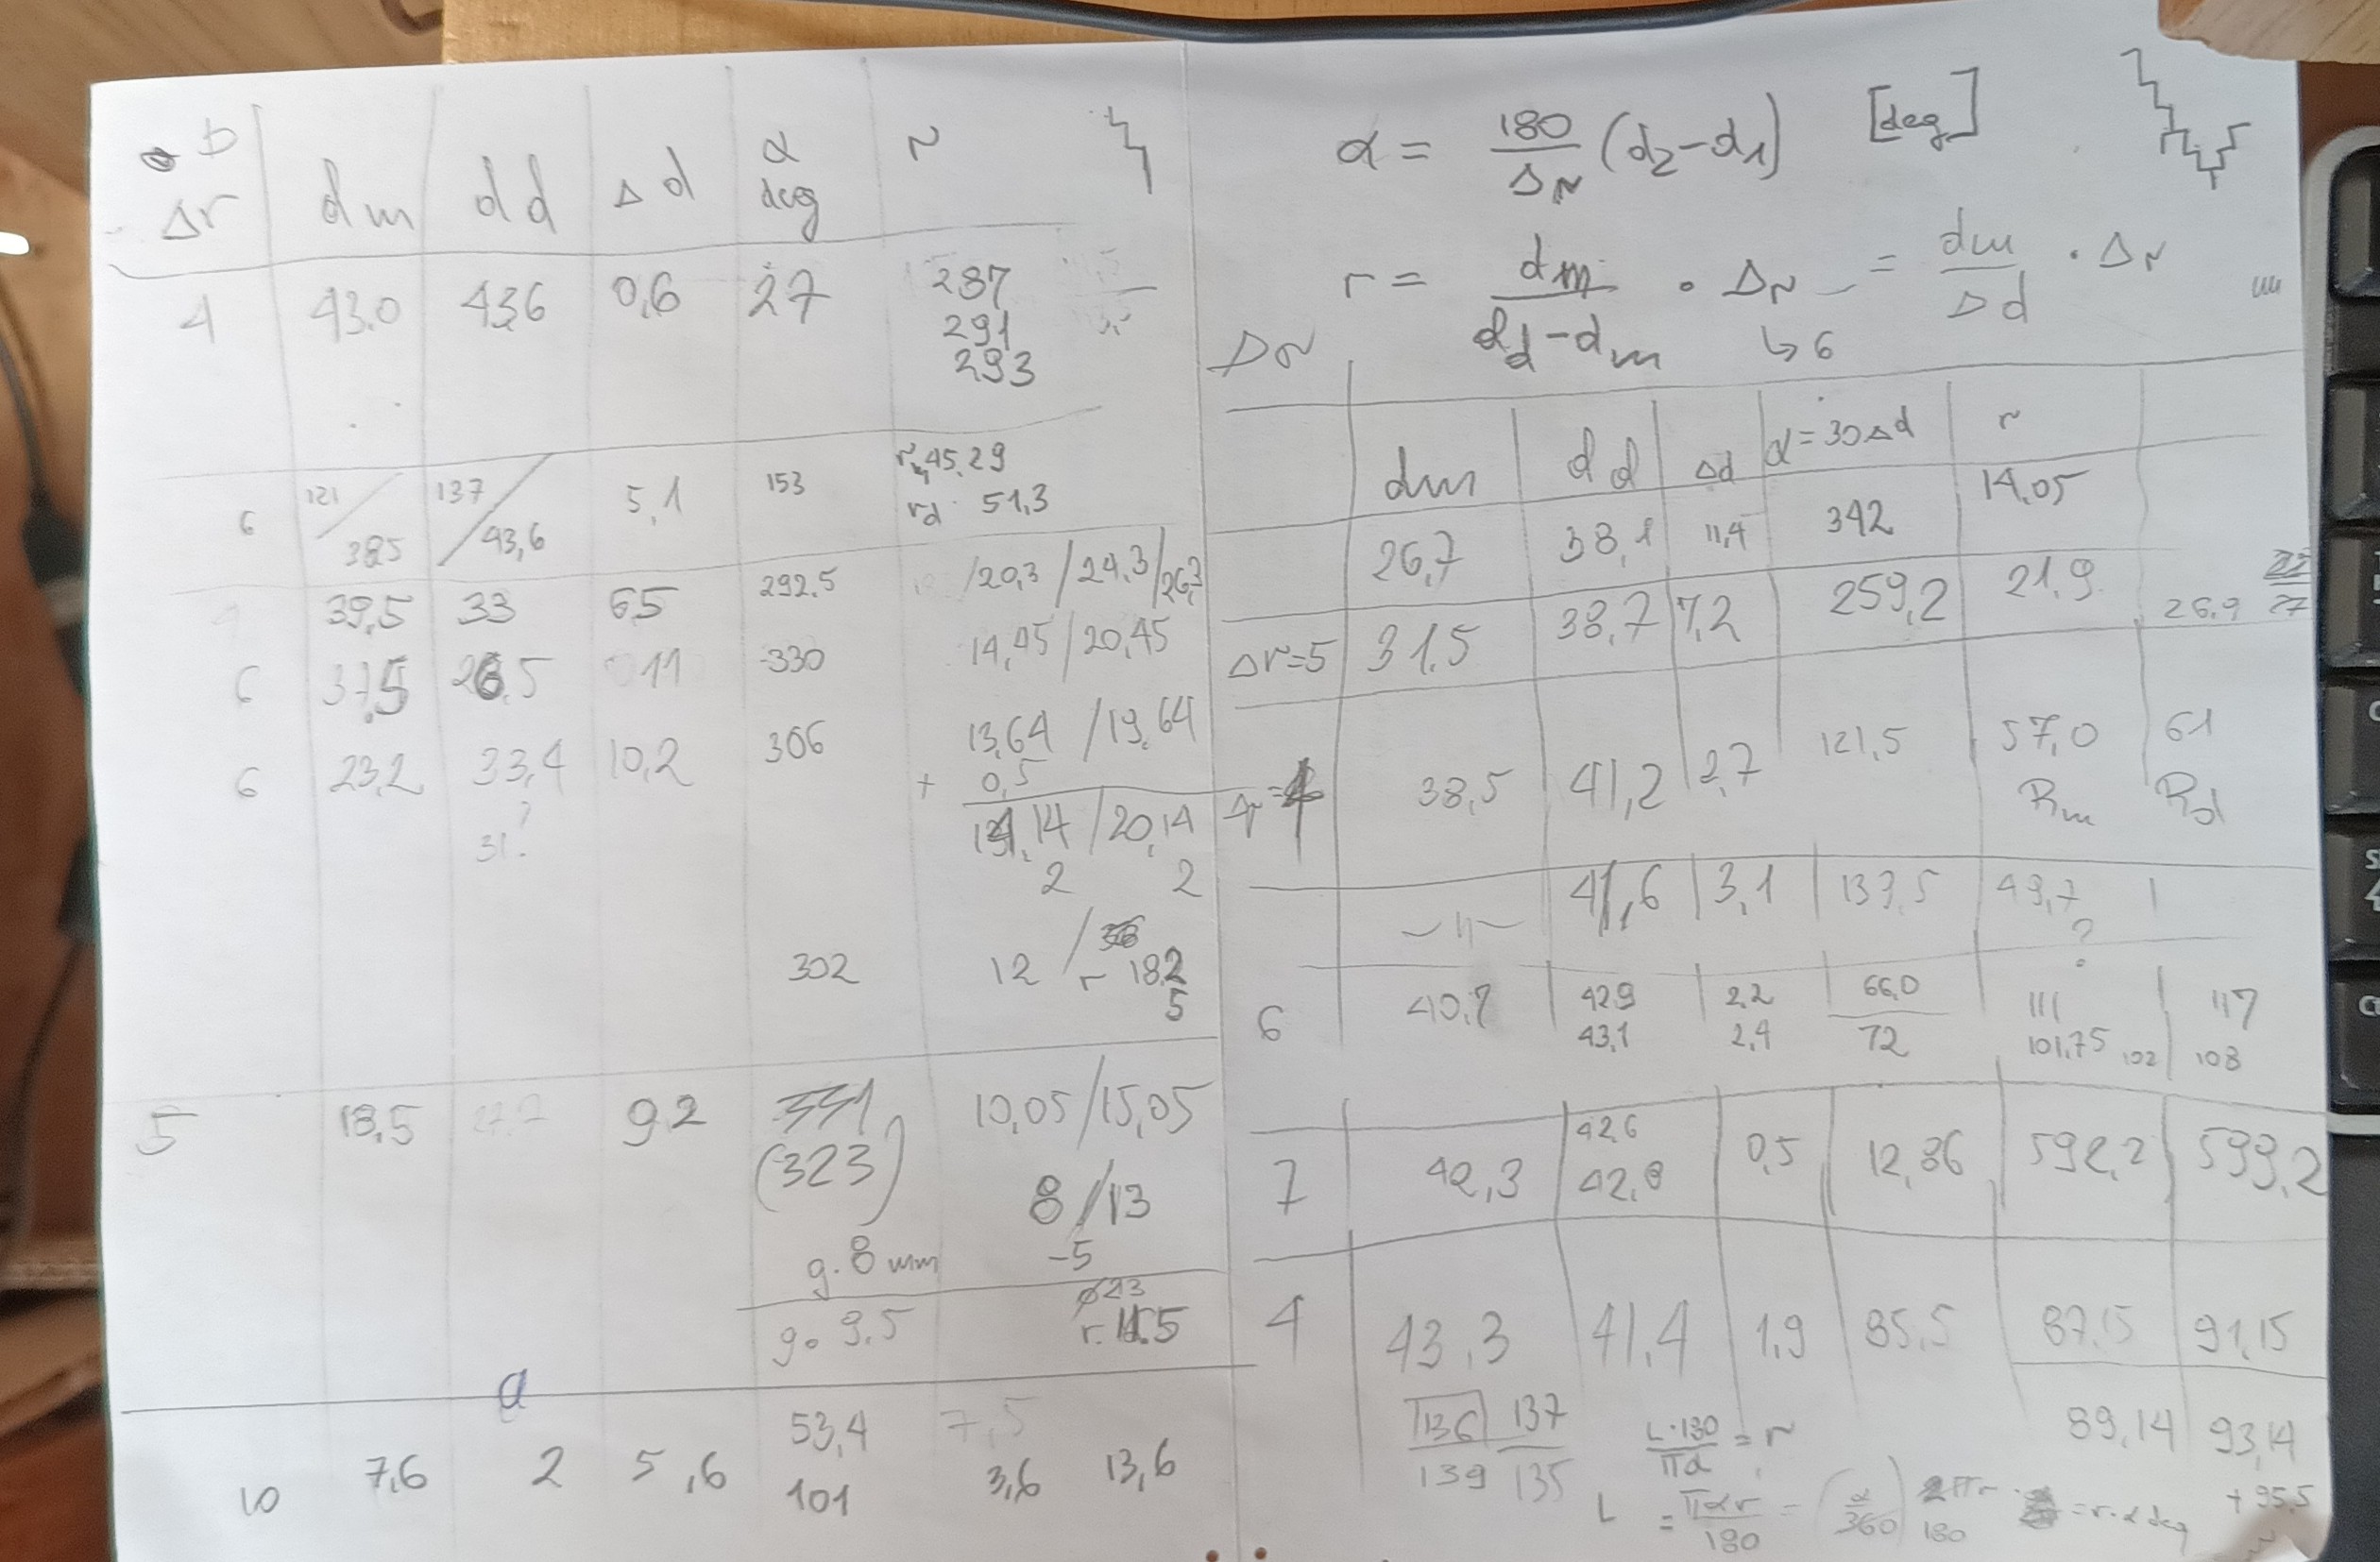 D
Δr dm dd Δd α deg r
4 43.0 43,6 0,6 27 287
291
293
6 121/38,5 137/43,6 5,1 153 rm 45,29
rd 51,3
39,5 33 6,5 292.5 /20,3/24,3/26,3
6 37,5 26,5 11 330 14,45/20,45
6 23,2 33,4 10,2 306 13,64/19,64
+ 0,5
31? 14,14/20,14
2 2
302 12 / r 18,2
5
5 18,5 27,7 9,2 331 10,05/15,05
(323) 8/13
g. 8 mm -5
ϕ23
g. 9,5 r. 11.5
d
53,4 7,5
10 7,6 2 5,6 101 3,6 13,6
α = 180/Δr (d2-d1) [deg]
r = dm/(dd-dm) · Δr = dm/Δd · Δr
↳6
Δr
dm dd Δd α=30Δd r
26,7 38,1 11,4 342 14,05
Δr=5 31,5 38,7 7,2 259,2 21,9 26,9 22/27
Δr=4 38,5 41,2 2,7 121,5 57,0 61
Rm Rd
-11- 41,6 3,1 139,5 49,7
?
6 40,7 42,9 2,2 66,0 111 117
43,1 2,4 72 101,75 102 108
42,6
7 42,3 42,8 0,5 12,86 592,2 599,2
4 43,3 41,4 1,9 85,5 87,15 91,15
136 137 L·180/πα = r 89,14 93,14
139 135
L = παr/180 = (α/360) 2πr = r·α deg + 95,5
180